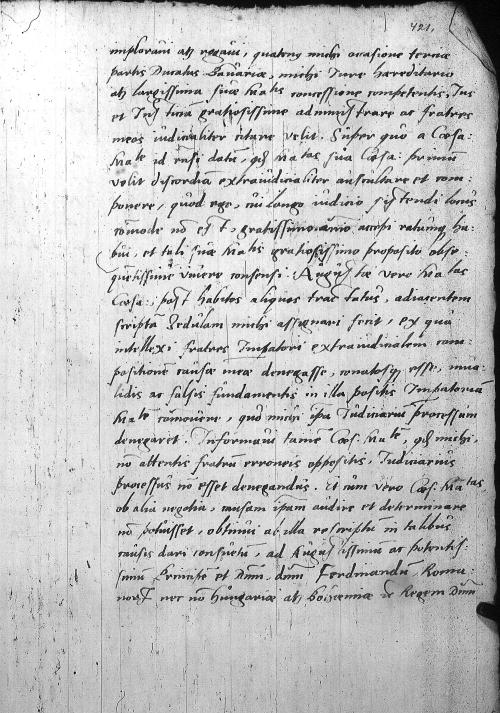 421.
imploravi atq rogavi, quatenq michi occasione terciæ
partis Ducatus Bavariæ, michi Jure hæreditario
atq largissima suæ Ma^tis concessione competentis, Jus
et Justiciam gratiosissime administrare ac fratres
meos iudicialiter citare velit. Super quo a Cæsa:
Ma^te id responsi datum, qd Ma^tas sua Cæsa: primum
velit discordiam extraiudicialiter auscultare et com:
ponere, quod ego, cui longo iudicio sistendi locus
comode nō est, gratissimo animo accepi ratumq ha:
bui, et tali suæ Ma^tis gratiosissimo proposito obse:
quētissime vivere consensi. Augustæ vero Ma^tas
Cæsa:, post habitos aliquos tractatus, adiacentem
scriptā Zedulam michi assignari fecit, ex qua
intellexi fratres Imperatori extraiudicialem com:
positionē causæ meæ denegasse, conatosq esse, inua:
lidis ac falsis fundamentis in illa positis Imperatoriā
Ma^te comovere, quo michi ipsa Judiciariū processum
denegaret. Informavi tamē Cæs: Ma^te, qd michi,
nō attentis fratrū erroneis oppositis, Judiciarius
processus nō esset denegandus. Et cum vero Cæs: Ma^tas,
ob alia negotia, causam ipsam audire et determinare
nō potuisset, obtinui ab illa rescriptū in talibus
causis dari consuetū, ad Augustissimū ac potentis:
simū Principē et Dnm, dnm Ferdinandū, Roma:
norū nec nō Hungariæ atq Boiemiæ Regem Dnm